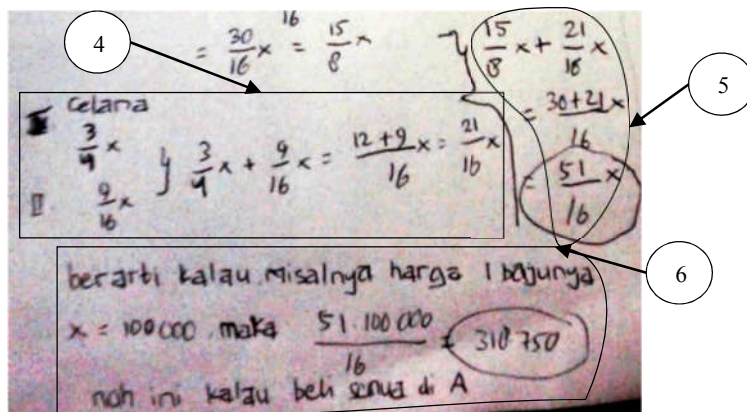 16
= 30/16 x = 15/8 x
15/8 x + 21/16 x
= 30+21/16 x
= 51/16 x
4
5
6
I celana
3/4 x
II 9/16 x
} 3/4 x + 9/16 x = 12+9/16 x = 21/16 x
berarti kalau misalnya harga 1 bajunya
x = 100000 maka 51.100 000/16 = 318 750
nah ini kalau beli semua di A